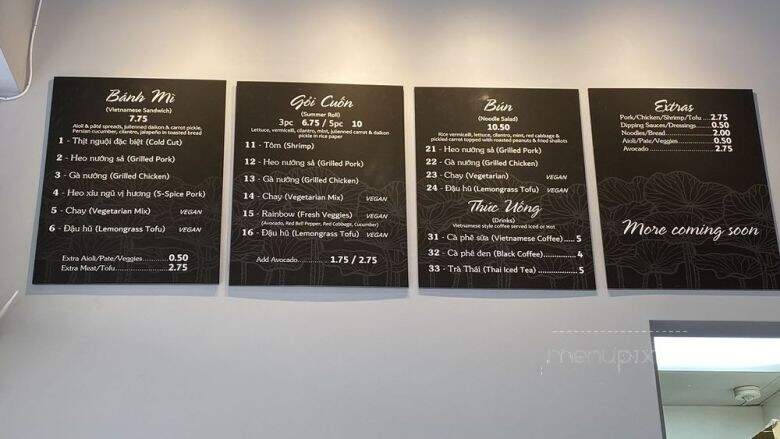 Bánh Mì
(Vietnamese Sandwich)
7.75
Aioli & pâté spreads, julienned daikon & carrot pickle,
Persian cucumber, cilantro, jalapeño in toasted bread
1 - Thịt nguội đặc biệt (Cold Cut)
2 - Heo nướng sả (Grilled Pork)
3 - Gà nướng (Grilled Chicken)
4 - Heo xíu ngũ vị hương (5-Spice Pork)
5 - Chay (Vegetarian Mix) VEGAN
6 - Đậu hũ (Lemongrass Tofu) VEGAN
Extra Aioli/Pate/Veggies 0.50
Extra Meat/Tofu 2.75
Gỏi Cuốn
(Summer Roll)
3pc 6.75 / 5pc 10
Lettuce, vermicelli, cilantro, mint, julienned carrot & daikon
pickle in rice paper
11 - Tôm (Shrimp)
12 - Heo nướng sả (Grilled Pork)
13 - Gà nướng (Grilled Chicken)
14 - Chay (Vegetarian Mix) VEGAN
15 - Rainbow (Fresh Veggies) VEGAN
(Avocado, Red Bell Pepper, Red Cabbage, Cucumber)
16 - Đậu hũ (Lemongrass Tofu) VEGAN
Add Avocado 1.75 / 2.75
Bún
(Noodle Salad)
10.50
Rice vermicelli, lettuce, cilantro, mint, red cabbage &
pickled carrot topped with roasted peanuts & fried shallots
21 - Heo nướng sả (Grilled Pork)
22 - Gà nướng (Grilled Chicken)
23 - Chay (Vegetarian) VEGAN
24 - Đậu hũ (Lemongrass Tofu) VEGAN
Thức Uống
(Drinks)
Vietnamese style coffee served Iced or Hot
31 - Cà phê sữa (Vietnamese Coffee) 5
32 - Cà phê đen (Black Coffee) 4
33 - Trà Thái (Thai Iced Tea) 5
Extras
Pork/Chicken/Shrimp/Tofu 2.75
Dipping Sauces/Dressings 0.50
Noodles/Bread 2.00
Aioli/Pate/Veggies 0.50
Avocado 2.75
More coming soon
menupix